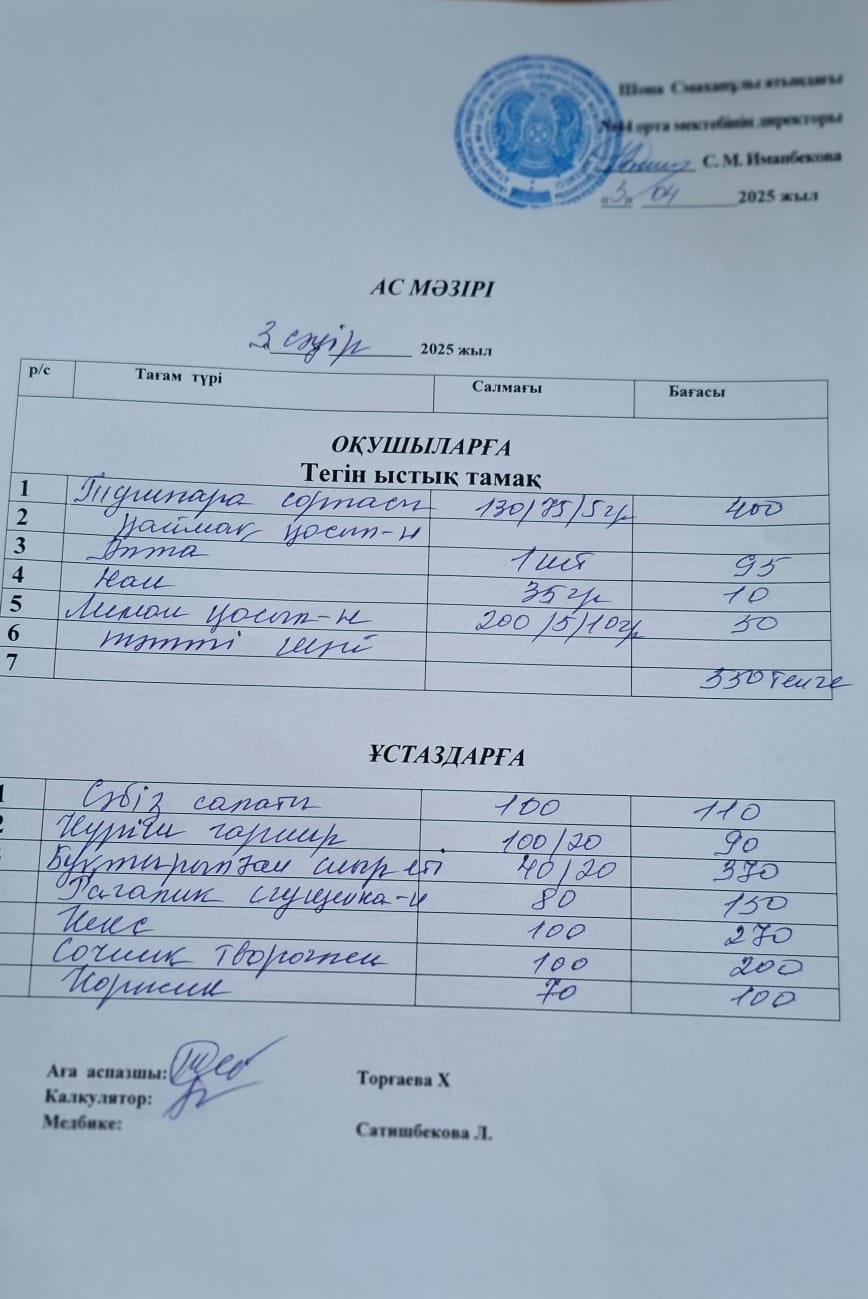 Шона Смаханұлы атындағы
№44 орта мектебінің директоры
С. М. Иманбекова
«3» 04 2025 жыл
АС МӘЗІРІ
3 сәуір 2025 жыл
р/с Тағам түрі Салмағы Бағасы
ОҚУШЫЛАРҒА
Тегін ыстық тамақ
1 Тұшпара сорпасы 130/75/5гр 400
2 қаймақ қосып-н
3 Алма 1шт 95
4 Нан 35гр 10
5 Лимон қосып-н 200/5/10гр 50
6 тәтті шәй
7 550теңге
ҰСТАЗДАРҒА
1 Сәбіз салаты 100 110
2 Күріш гарнир 100/20 90
Бұқтырылған сиыр еті 40/20 370
Рагалик сгущенка-н 80 150
Кекс 100 270
Сочник творогпен 100 200
Коржик 70 100
Аға аспазшы: Торғаева Х
Калкулятор:
Медбике: Сатишбекова Л.